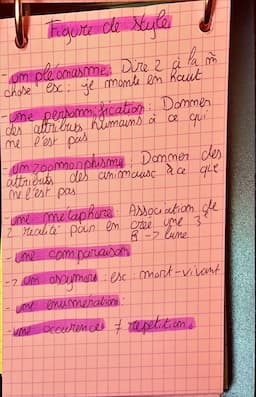 Figure de style
un pléonasme : Dire 2 x la m̂
chose ex : je monte en haut
une personnification : Donner
des attributs humains à ce qui
ne l'est pas
un zoomorphisme : Donner des
attributs des animaux à ce que
ne l'est pas
- une métaphore Association de
2 réalité pour en crée une 3ᵉ
B -> lune
- une comparaison
-> un oxymore : ex : mort-vivant
- une énumération :
- une occurence ≠ répétition